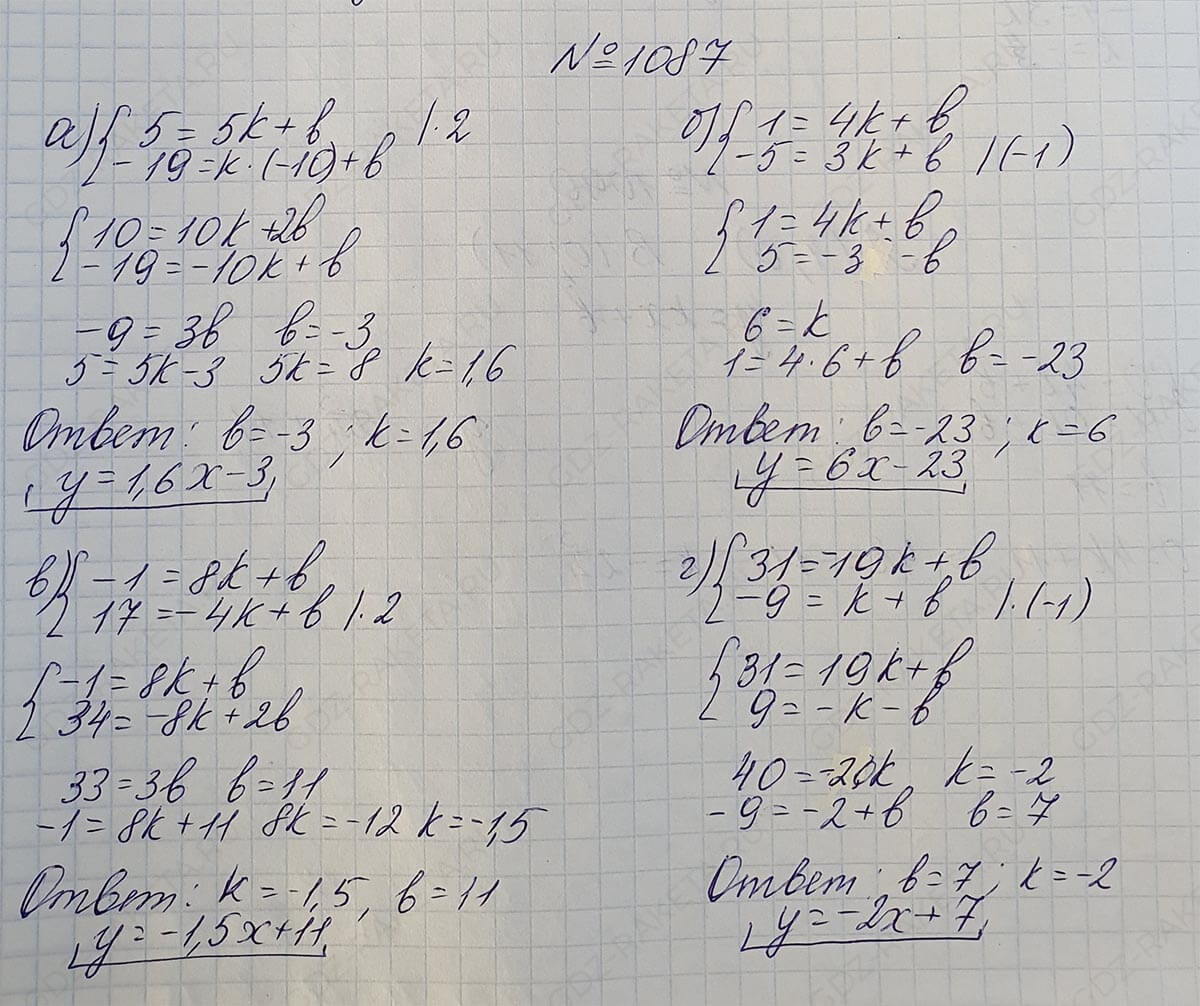 №1087
а) { 5 = 5k + b | · 2
- 19 = k · (-10) + b
{ 10 = 10k + 2b
- 19 = -10k + b
-9 = 3b b = -3
5 = 5k - 3 5k = 8 k = 1,6
Ответ: b = -3 ; k = 1,6
y = 1,6x - 3
б) { 1 = 4k + b
-5 = 3k + b | (-1)
{ 1 = 4k + b
5 = -3 - b
6 = k
1 = 4 · 6 + b b = -23
Ответ: b = -23 ; k = 6
y = 6x - 23
в) { -1 = 8k + b
17 = -4k + b | · 2
{ -1 = 8k + b
34 = -8k + 2b
33 = 3b b = 11
-1 = 8k + 11 8k = -12 k = -1,5
Ответ: k = -1,5, b = 11
y = -1,5x + 11
г) { 31 = -19k + b
-9 = k + b | · (-1)
{ 31 = 19k + b
9 = -k - b
40 = -20k k = -2
-9 = -2 + b b = 7
Ответ: b = 7 ; k = -2
y = -2x + 7